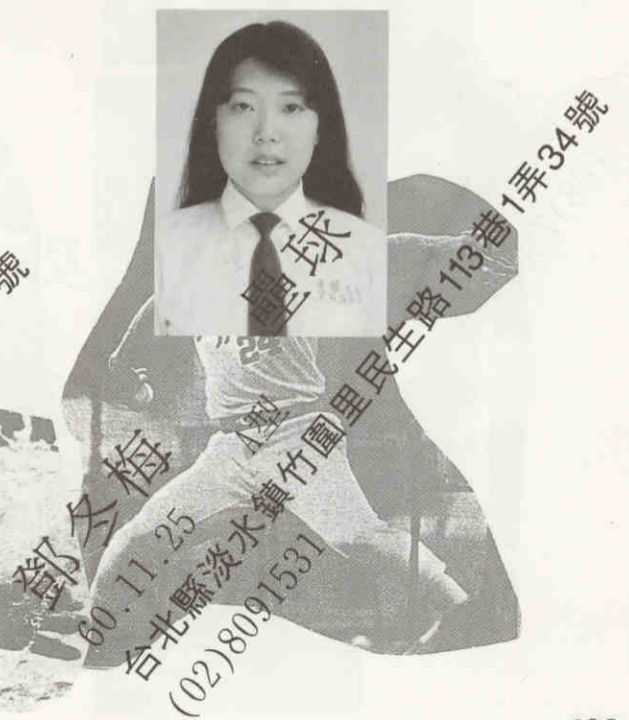 壘球
鄧冬梅
A型
60.11.25
台北縣淡水鎮竹圍里民生路113巷1弄34號
(02)8091531
號